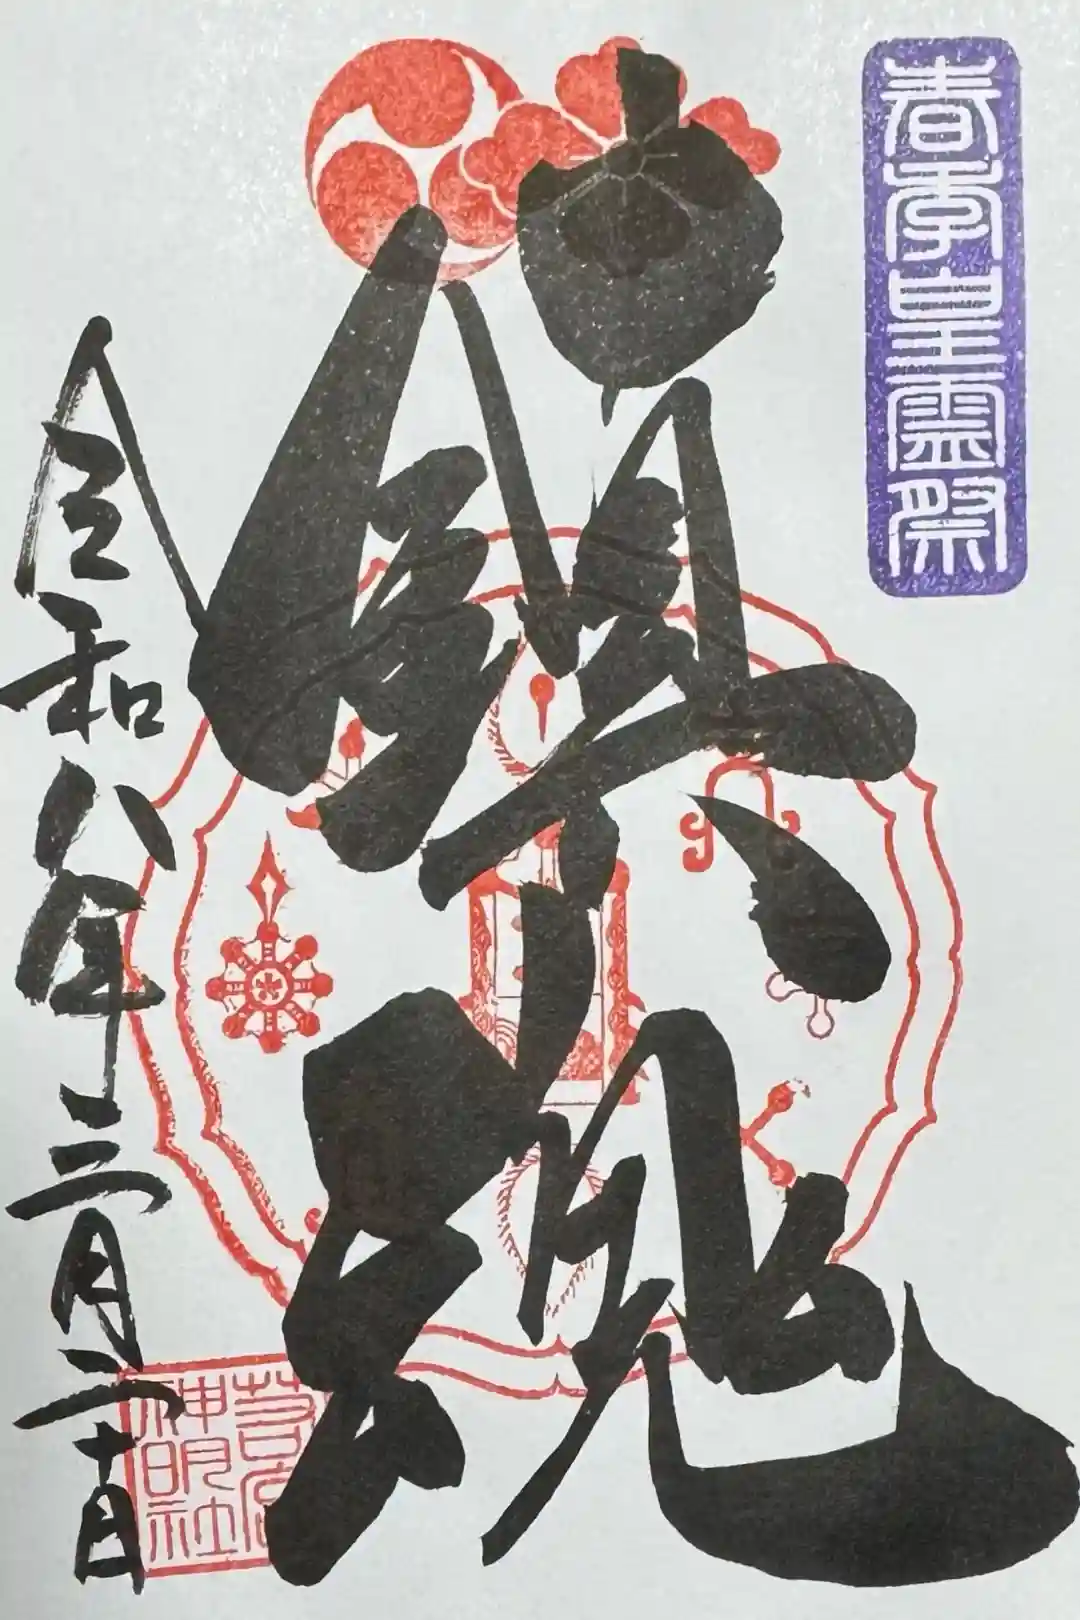 春季皇霊祭
鎮魂
令和八年三月二十日
神明社